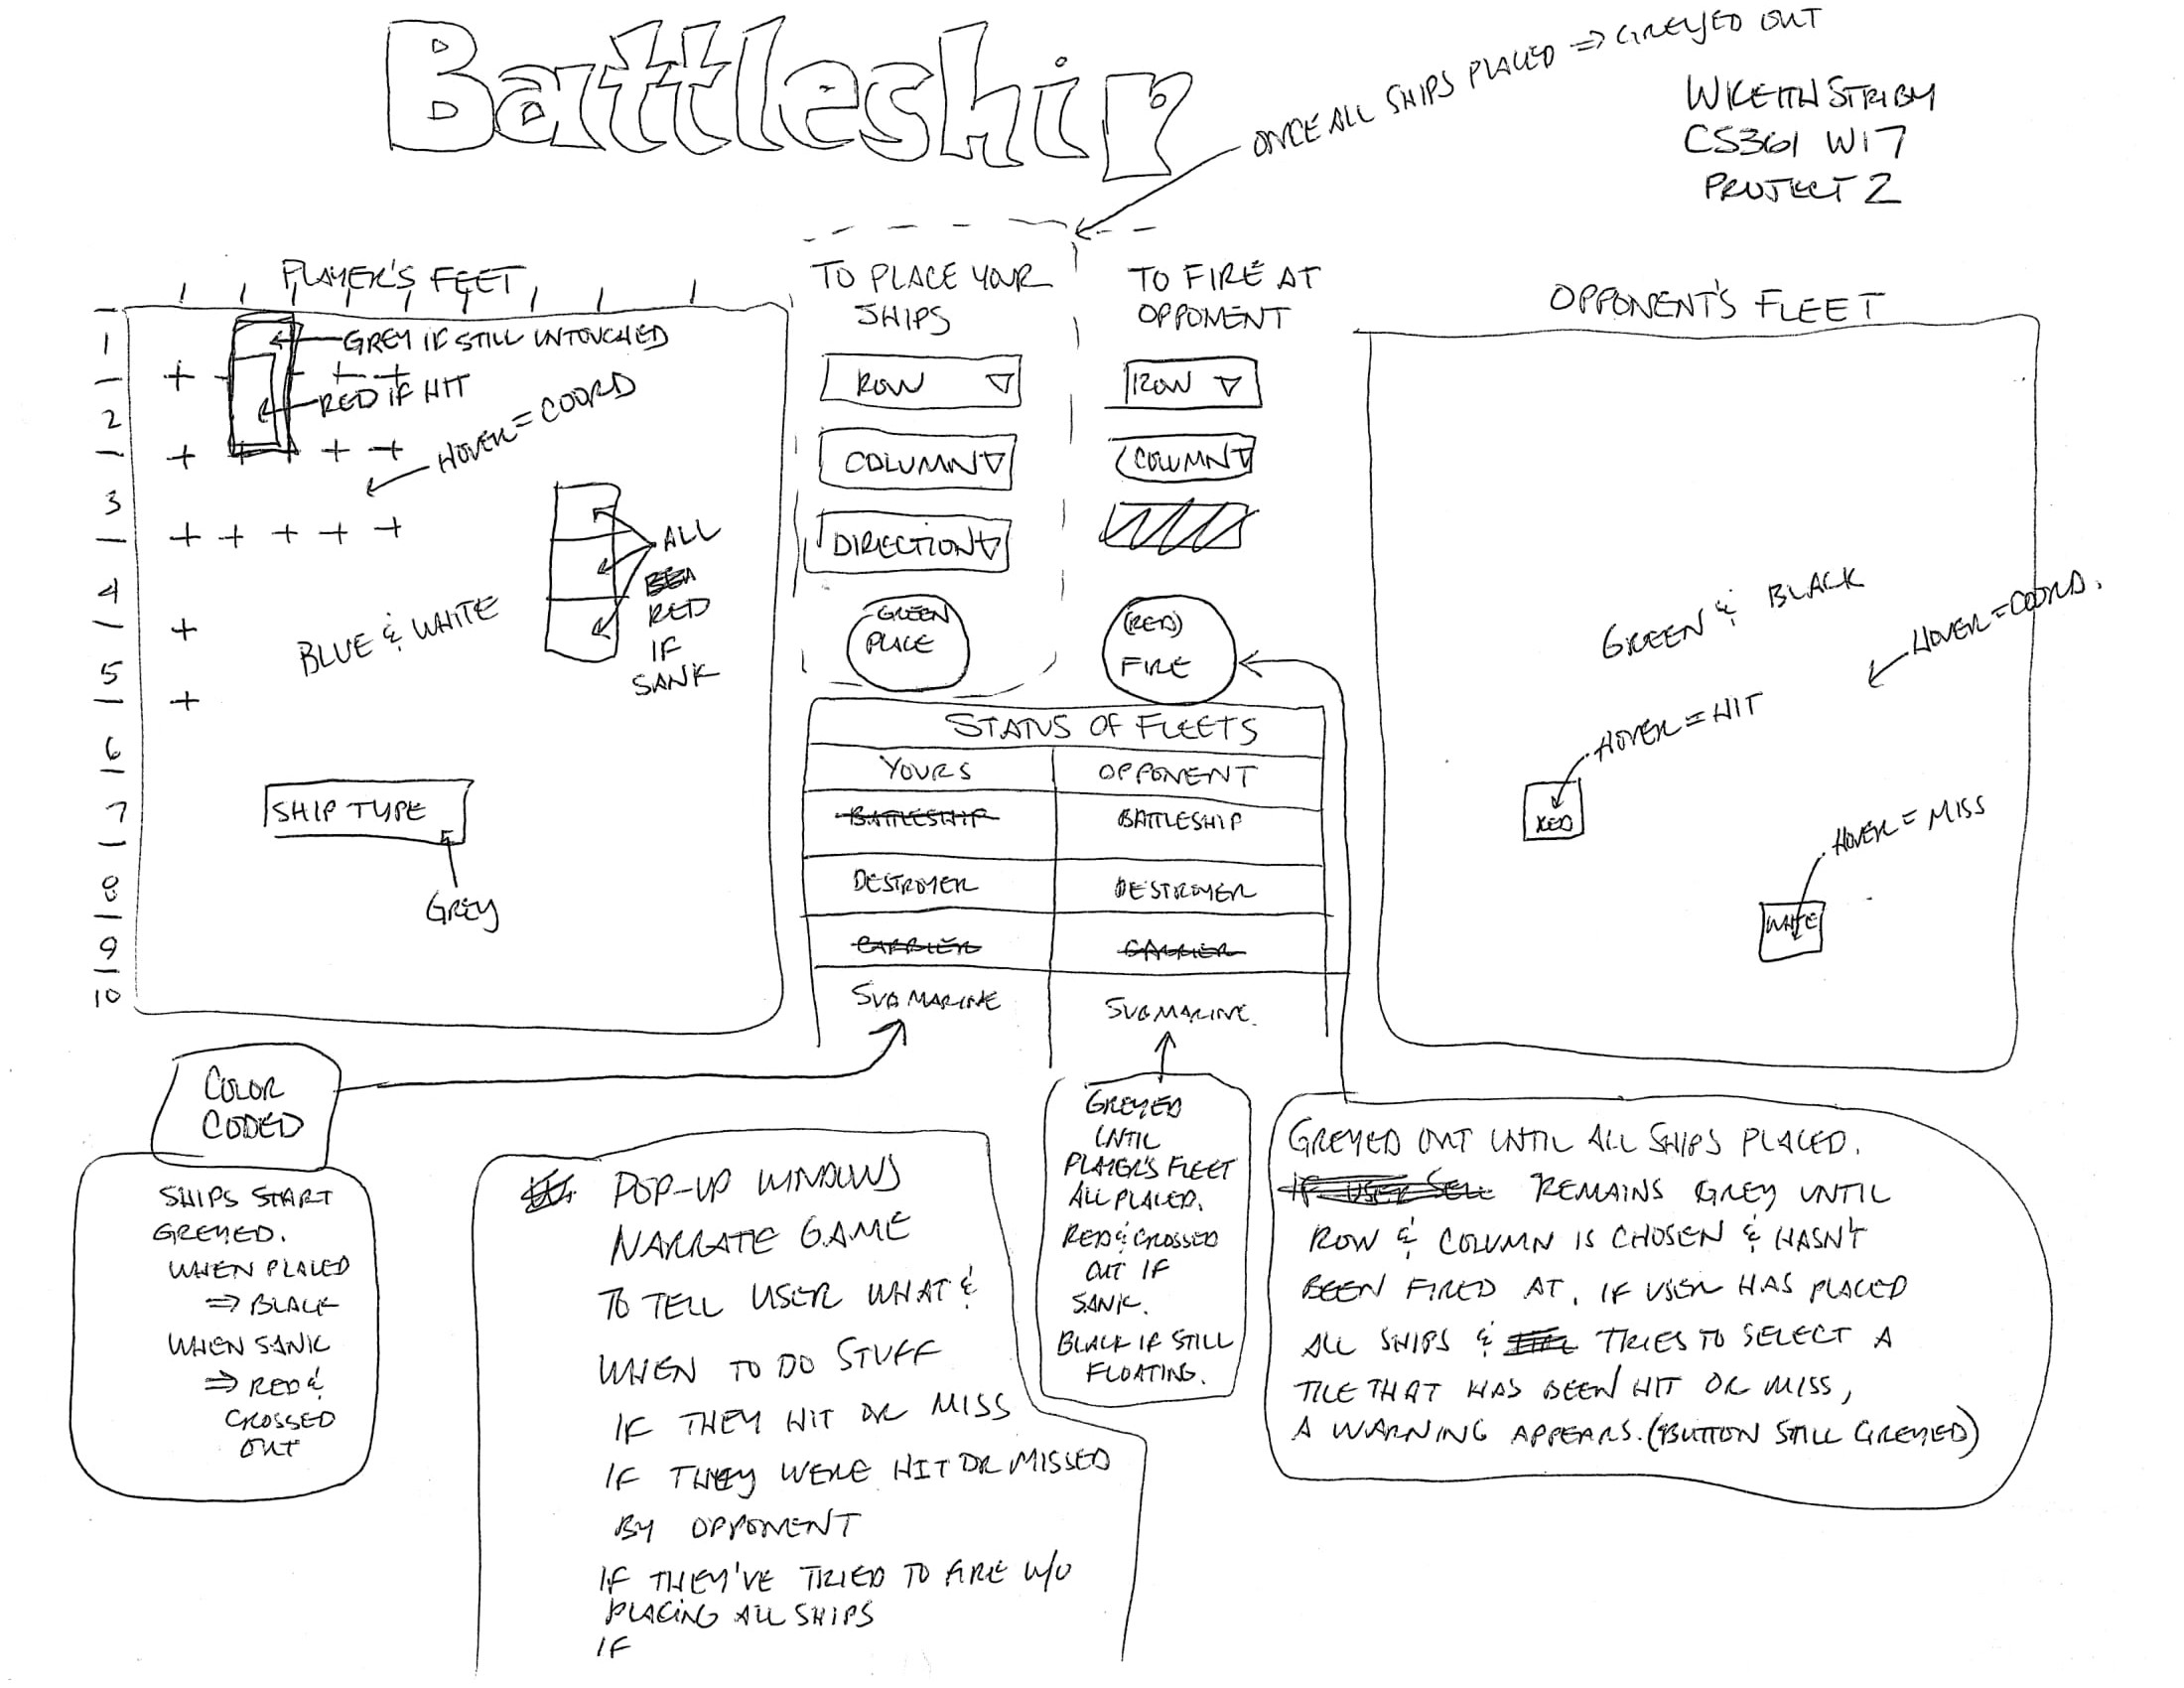 Battleship
ONCE ALL SHIPS PLACED ⇒ GREYED OUT
WKEITH STRIBY
CS361 W17
PROJECT 2
PLAYER'S FEET
1
2
3
4
5
6
7
8
9
10
GREY IF STILL UNTOUCHED
RED IF HIT
HOVER = COORD
ALL
RED
IF
SANK
BLUE & WHITE
SHIP TYPE
GREY
TO PLACE YOUR
SHIPS
ROW
COLUMN
DIRECTION
GREEN
PLACE
TO FIRE AT
OPPONENT
ROW
COLUMN
(RED)
FIRE
OPPONENT'S FLEET
GREEN & BLACK
HOVER = COORD.
HOVER = HIT
RED
HOVER = MISS
WHITE
STATUS OF FLEETS
YOURS OPPONENT
BATTLESHIP BATTLESHIP
DESTROYER DESTROYER
CARRIER CARRIER
SUBMARINE SUBMARINE
COLOR
CODED
SHIPS START
GREYED.
WHEN PLACED
⇒ BLACK
WHEN SANK
⇒ RED &
CROSSED
OUT
POP-UP WINDOWS
NARRATE GAME
TO TELL USER WHAT &
WHEN TO DO STUFF
IF THEY HIT OR MISS
IF THEY WERE HIT OR MISSED
BY OPPONENT
IF THEY'VE TRIED TO FIRE W/O
PLACING ALL SHIPS
IF
GREYED
UNTIL
PLAYER'S FLEET
ALL PLACED.
RED & CROSSED
OUT IF
SANK.
BLACK IF STILL
FLOATING.
GREYED OUT UNTIL ALL SHIPS PLACED.
IF USER SELE REMAINS GREY UNTIL
ROW & COLUMN IS CHOSEN & HASN'T
BEEN FIRED AT. IF USER HAS PLACED
ALL SHIPS & TRIES TO SELECT A
TILE THAT HAS BEEN HIT OR MISS,
A WARNING APPEARS. (BUTTON STILL GREYED)